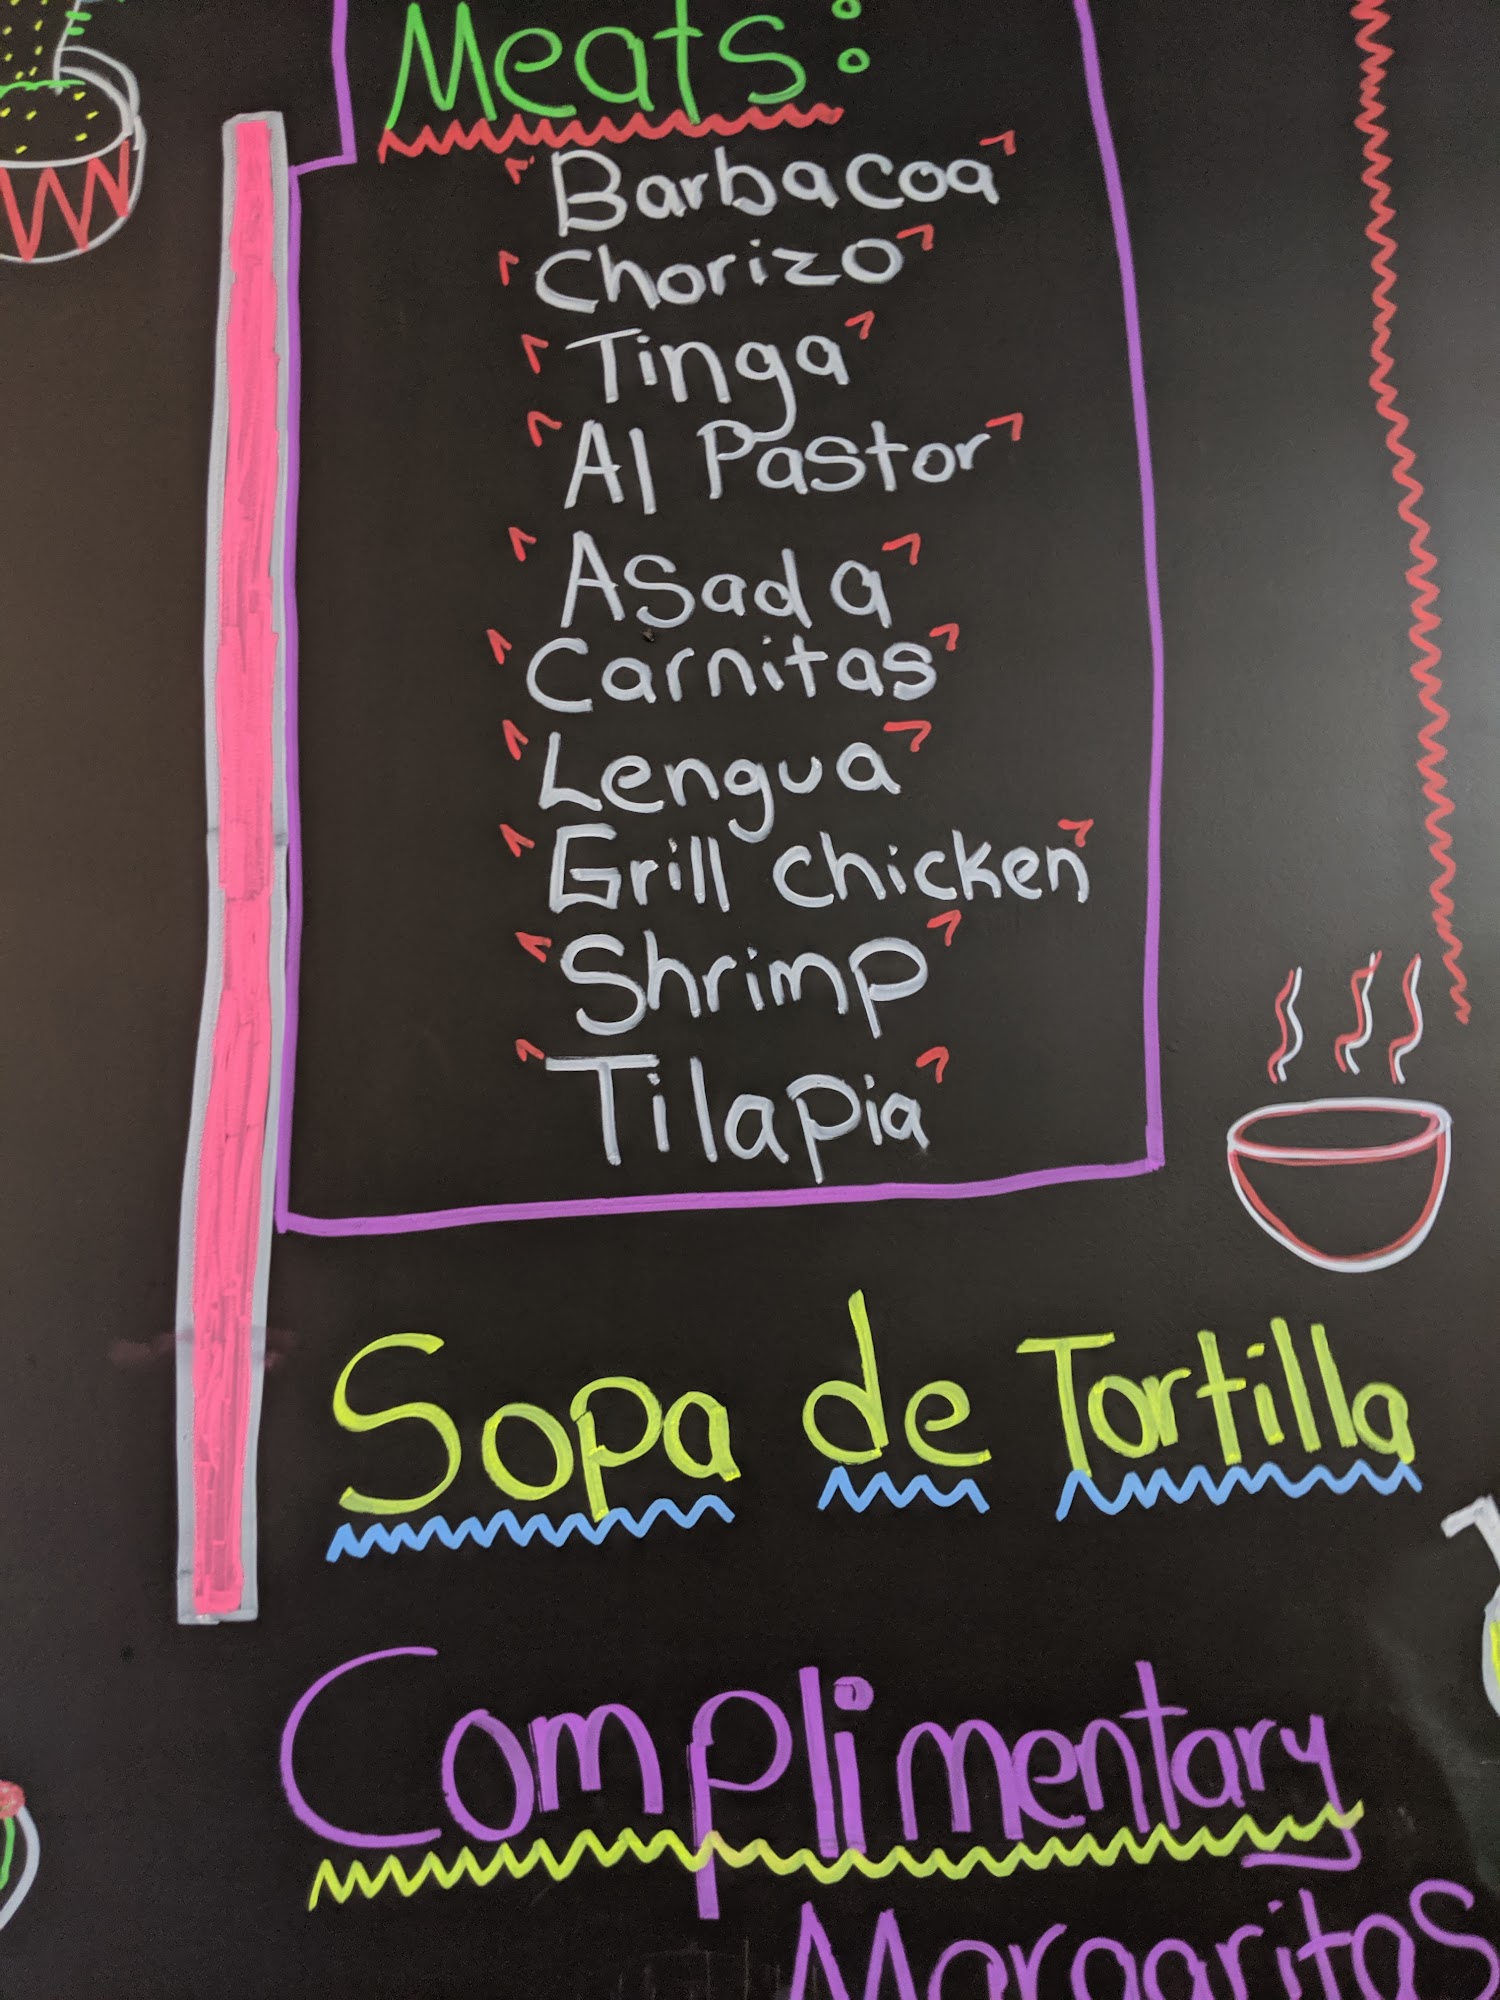 Meats:
Barbacoa
Chorizo
Tinga
Al Pastor
Asada
Carnitas
Lengua
Grill chicken
Shrimp
Tilapia
Sopa de Tortilla
Complimentary
Margaritas